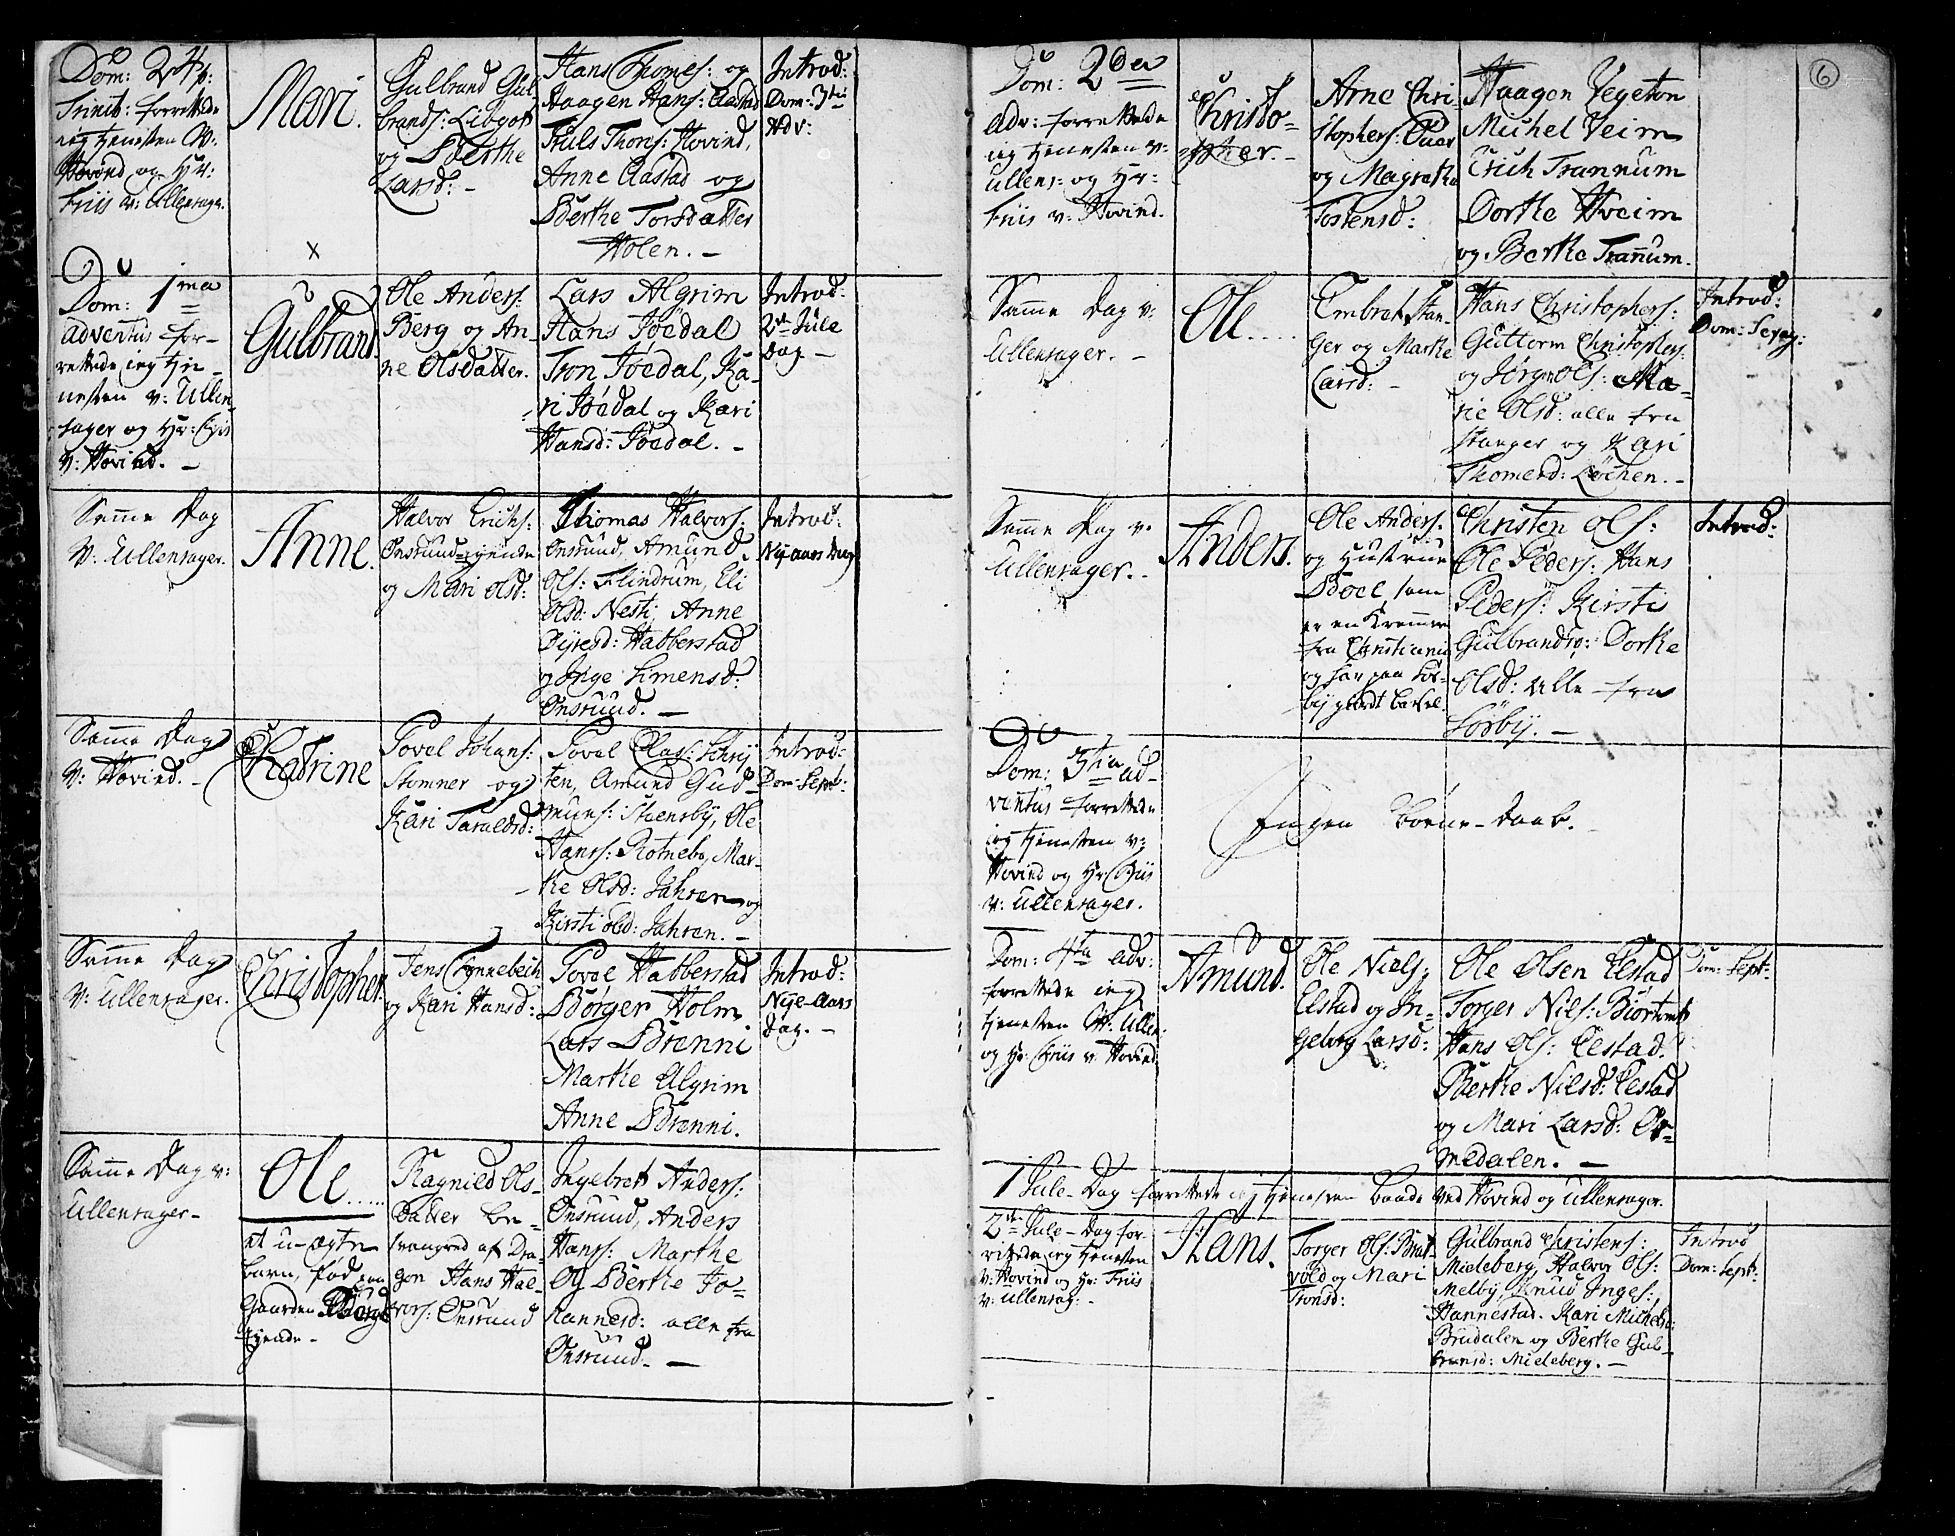 Dom: 24 p:
Trinit: forrettede
ieg tjenesten v:
Hovind og Hr:
Friis v: Ullensager.
Mari.
Gulbrand Gul
brands: Libgott
og Berthe
Larsd: -
Hans Thomes: og
Haagen Hans: Aastad
Truls Thors: Hovind,
Anne Aastad og
Berthe Torsdatter
Holen. -
Introd:
Dom: 3tie
Adv:
x
Dom: 1ma
Adventus for-
rettede ieg tje-
nesten v: Ullen-
sager og Hr: Friis
v: Hovind. -
Gulbrand.
Ole Anders:
Berg og An-
ne Olsdatter.
Lars Algrim
Hans Jøedal
Tron Jøedal, Ka-
ri Jøedal og Kari
Hansd: Jøedal. -
Introd:
2den Jule
Dag -
Samme Dag
v: Ullensager.
Anne.
Halvor Erichs:
Onsrund-ejende
og Mari Olsd:
Thomas Halvors:
Onsrund, Amund
Ols: Flindrum, Eli
Olsd: Nestj Anne
Øyresd: Habberstad
og Inge Simensd:
Onsruud. -
Introd:
Nye aars Dag
Samme Dag
v: Hovind. -
Katrine
Povel Johans:
Stomner og
Kari Taraldsd:
Povel Clas: Schrij
ten, Amund Gud-
muns: Stensby, Ole
Hans: Rotnebo, Mar-
the Olsd: Jahren og
Kirsti Olsd: Jahren. -
Introd:
Dom: Sept:
Samme Dag
v: Ullensager.
Christopher.
Jens Tynnebech
og Kari Hansd:
Povel Habberstad
Børger Holm
Lars Brenni
Marthe Algrim
Anne Brenni.
Introd:
Nye-Aars
Dag. -
Samme Dag v:
Ullensager -
Ole.....
et u-ægte
barn, fød paa
Gaarden Borge
ejende -
Ragnild Ols-
datter be-
svangred af Dra-
gon Hans Hal-
vors: Onsrund
Ingebret Anders:
Onsruud, Anders
Hans: Marthe
Og Berthe Jo-
hannesd: alle fra
Onsruud. -
6
Dom: 2den
Adv: forrettede
ieg tjenesten v:
Ullens: og Hr:
Friis v: Hovind.
Christo-
pher. -
Arne Chri-
stophers:
og Magrethe
Tostensd:
Haagen Vegeton
Michel Veim
Erich Trannum
Dorthe Hveim
og Berthe Trannum.
Samme Dag v:
Ullensager. -
Ole.....
Embret Stan-
ger og Marthe
Larsd: -
Hans Christophers:
Guttorm Christophers:
og Jørgen Ols: Ma-
rie Olsd: alle fra
Stanger og Kari
Thomesd: Løchen. -
Introd:
Dom: Sexag:
Samme Dag v.
Ullensager. -
Anders.
Ole Anders:
og Hustrue
Boel, som
er en Kremmer
fra Christiania
og har paa Sør-
by giordt barsel.
Christen Ols:
Ole Peders: Hans
Peders: Kirsti
Gulbrandsd: Dorthe
Olsd: alle fra
Sørby. -
Introd:
Dom: 3tia ad-
ventus forrettede
ieg tjenesten v:
Hovind og Hr Friis
v: Ullensager.
Ingen Børne-Daab. -
Dom: 4ta adv:
forrettede ieg
tjenesten v: Ullen:
og Hr: Friis v: Hovind
Amund.
Ole Niels:
Elstad og In-
geborg Larsd:
Ole Olsen Elstad
Torger Niels: Biørtomt
Hans Ols: Elstad.
Berthe Nielsd: Elstad
og Mari Larsd: Or-
medalen. -
Dom: Sept:
1 Jule-Dag forrettede ieg tjenesten baade ved Hovind og Ullensager.
2den Jule-Dag for-
rettede ieg tjenesten
v: Hovind og Hr: Friis
v: Ullensag: -
Hans.
Torger Ols: Brat-
vold og Mari
Tronsd:
Gulbrand Christens:
Mieleberg, Halvor Ols:
Melby, Knud Inges:
Hannestad. Kari Michelsd:
Brudalen og Berthe Gul-
bransd: Mieleberg. -
Introd
Dom: Sept: